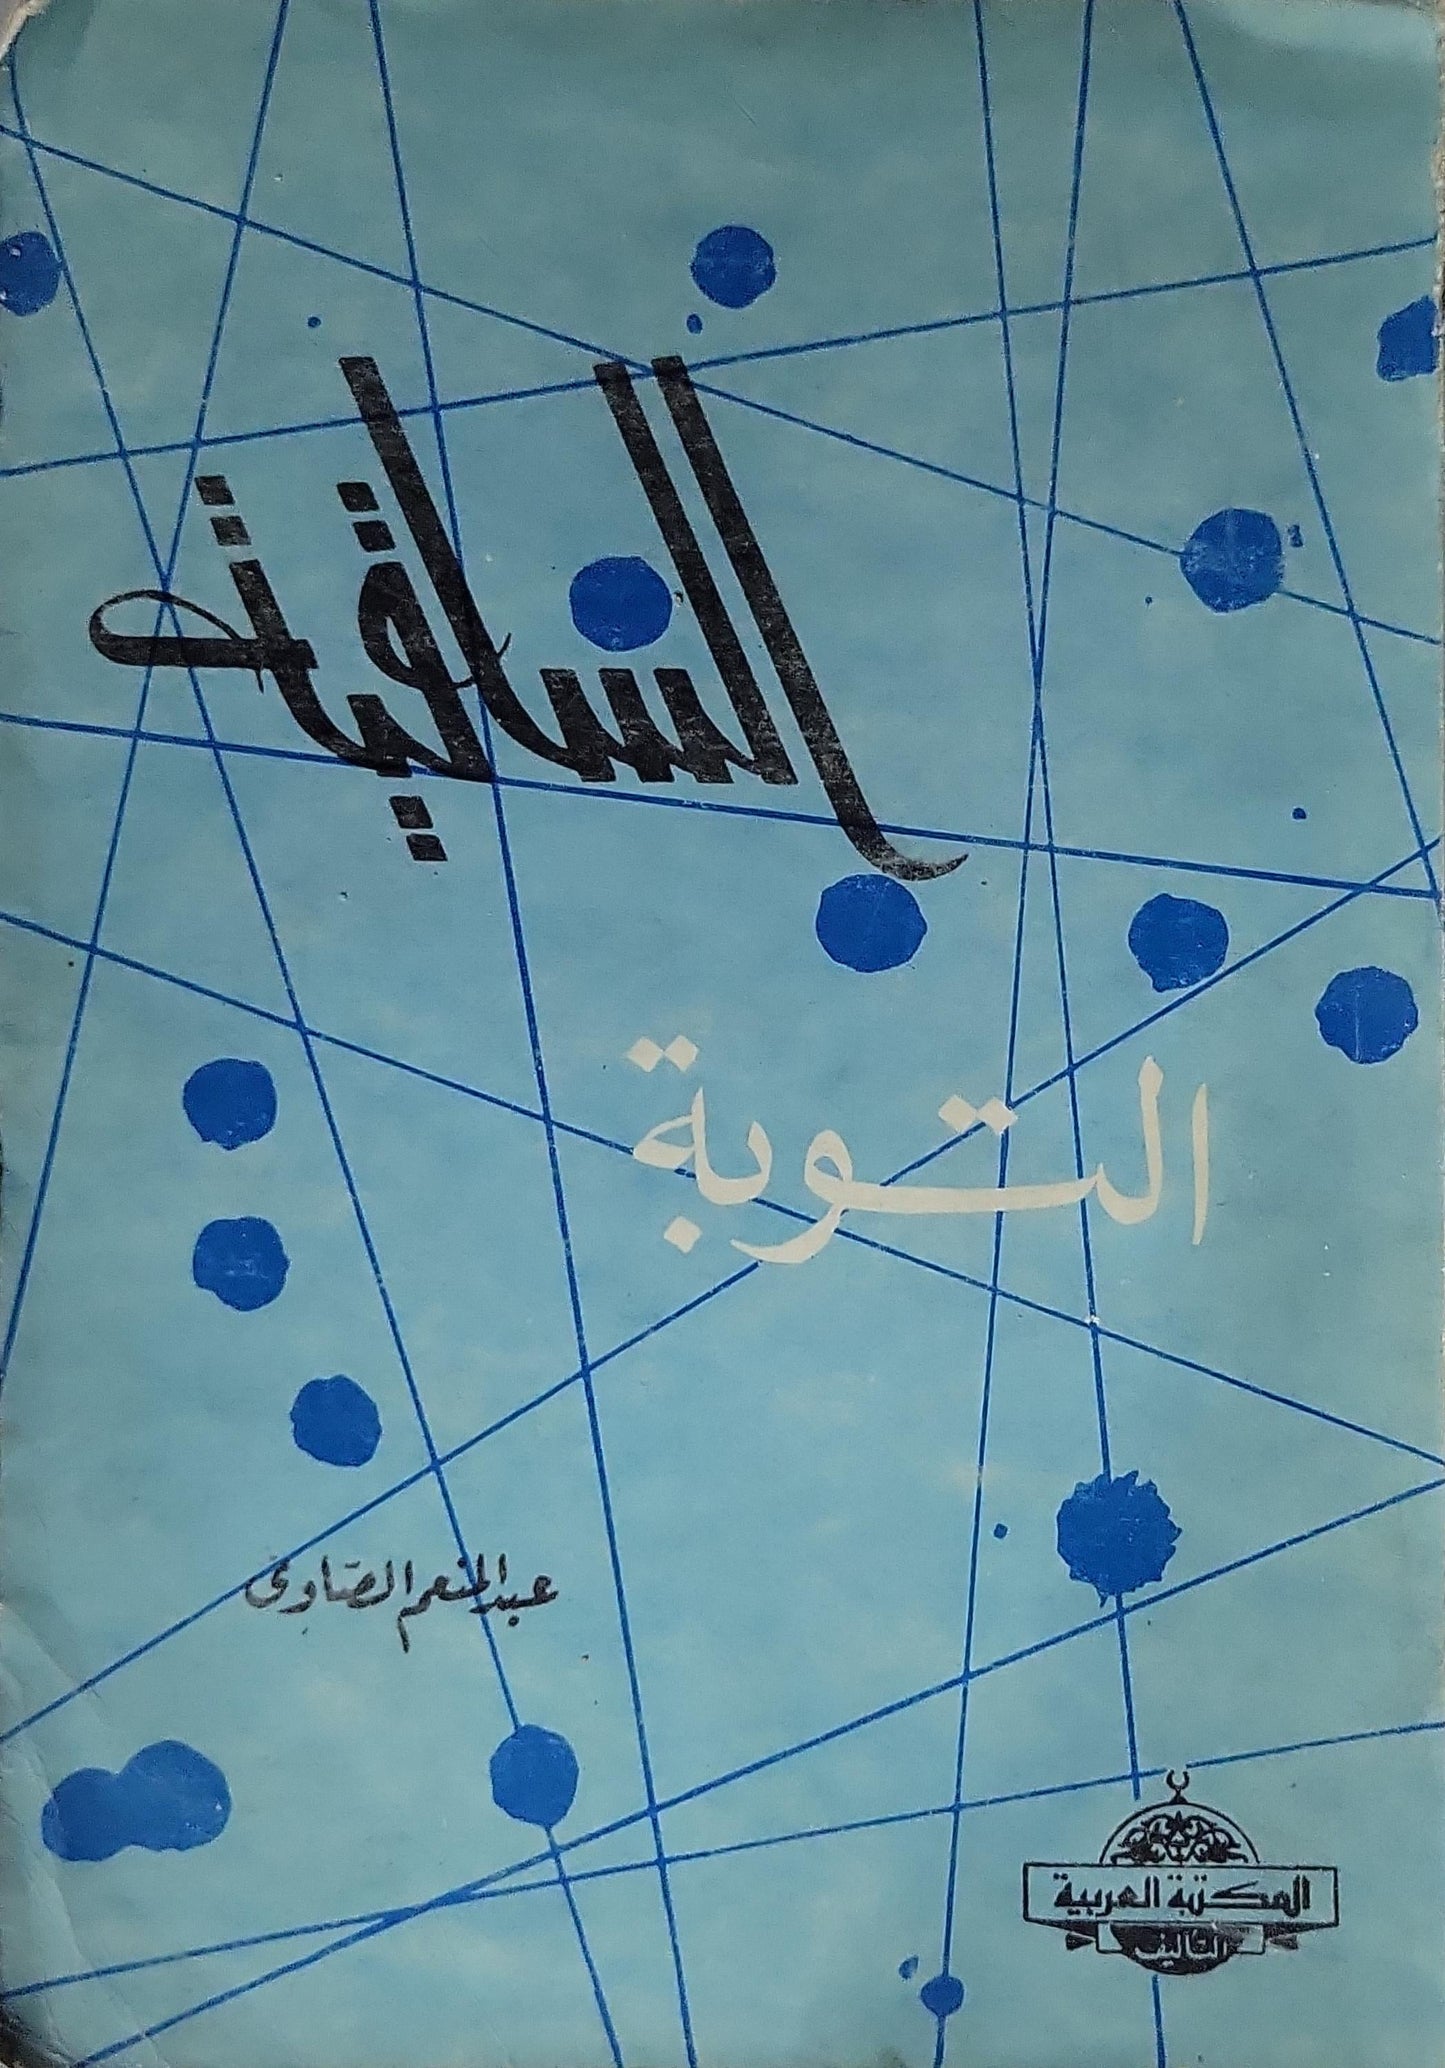 الساقية
التوبة
عبد المنعم الصاوى
المكتبة العربية
التأليف